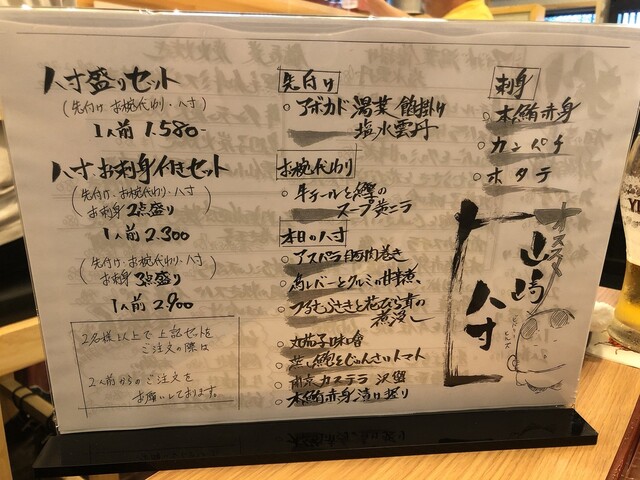 八寸盛りセット
(先付け・お椀代わり・八寸)
1人前 1.580-
八寸お刺身付きセット
(先付け・お椀代わり・八寸
お刺身2点盛り)
1人前 2.300
(先付け・お椀代わり・八寸
お刺身3点盛り)
1人前 2.900
2名様以上で上記セットを
ご注文の際は
2人前からのご注文を
お願いしております。
先付け
アボカド 湯葉 餡掛け
塩水雲丹
お椀代わり
牛テールと鰹の
スープ 黄ニラ
本日の八寸
アスパラ豚肉巻き
鳥レバーとクルミの甘辛煮
煮浸し
丸茄子味噌
蒸し鮑とじゅんさいトマト
南京カステラ 沢蟹
本鮪赤身漬け握り
刺身
本鮪赤身
カンパチ
ホタテ
オススメ
山崎
八寸